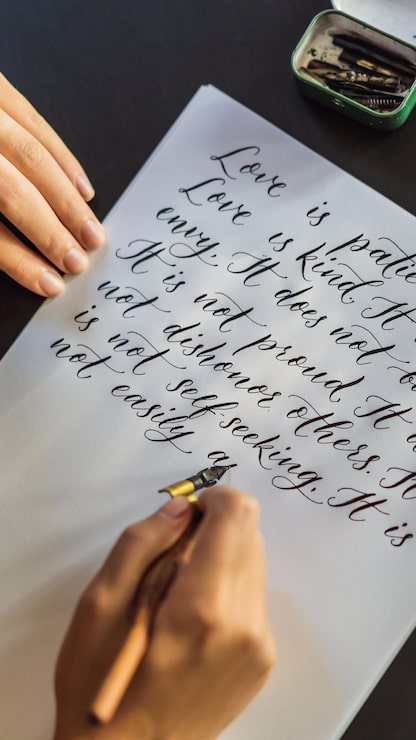 Love is patie
Love is kind. It
envy. It does not
It is not proud. It
not dishonor others. It
is not self seeking. It is
not easily a